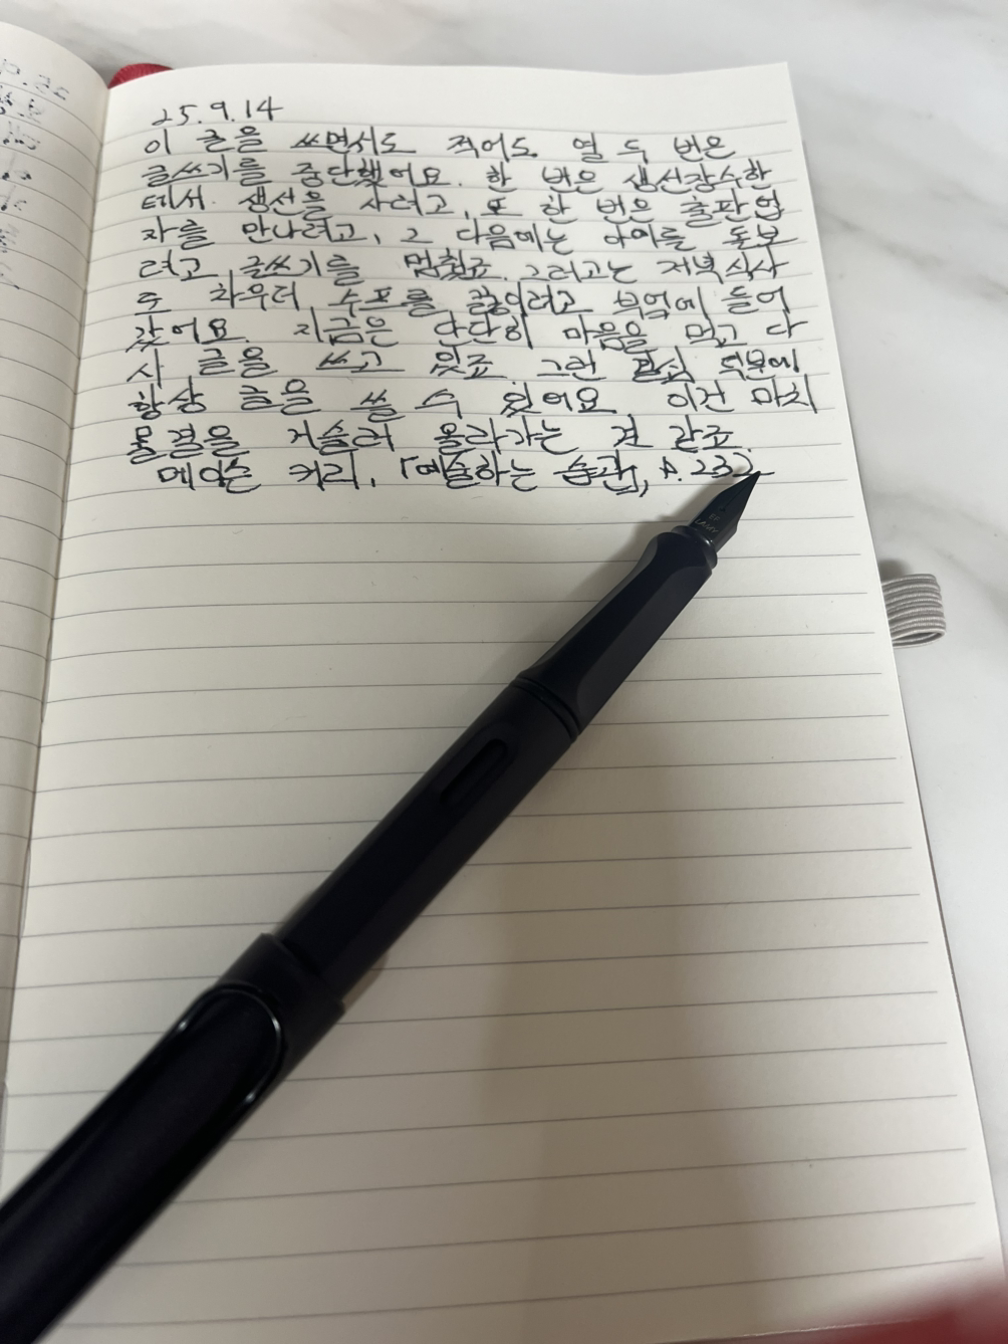 25.9.14
이 글을 쓰면서도 적어도 열 두 번은
글쓰기를 중단했어요. 한 번은 생선장수한
테서 생선을 사려고, 또 한 번은 출판업
자를 만나려고, 그 다음에는 아이를 돌보
려고 글쓰기를 멈췄죠. 그러고는 저녁식사
로 차우더 수프를 끓이려고 부엌에 들어
갔어요. 지금은 단단히 마음을 먹고 다
시 글을 쓰고 있죠. 그런 결심 덕분에
항상 글을 쓸 수 있어요. 이건 마치
물결을 거슬러 올라가는 것 같죠.
메이슨 커리, 「예술하는 습관」, p.232
LAMY